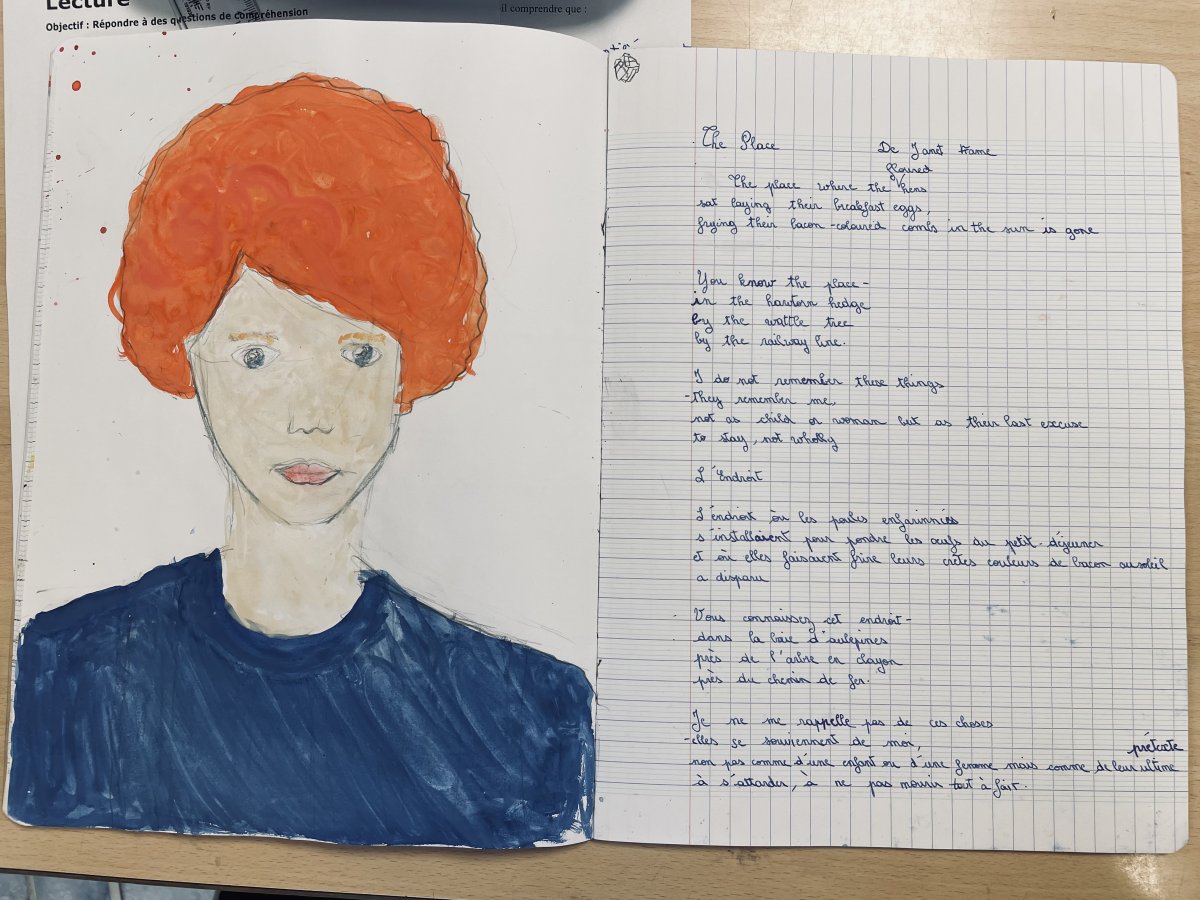 Lecture
Objectif : Répondre à des questions de compréhension
il comprendre que :
The Place De Janet Frame
floured
The place where the hens
sat laying their breakfast eggs,
frying their bacon-coloured combs in the sun is gone
You know the place-
in the hawtorn hedge
by the wattle tree
by the railway line.
I do not remember these things
-they remember me,
not as child or woman but as their last excuse
to stay, not wholly
L'Endroit
L'endroit où les poules enfarinnées
s'installaient pour pondre les œufs du petit-déjeuner
et où elles faisaient frire leurs crêtes couleurs de bacon au soleil
a disparu
Vous connaissez cet endroit-
dans la haie d'aubépines
près de l'arbre en clayon
près du chemin de fer.
Je ne me rappelle pas de ces choses
-elles se souviennent de moi,
prétexte
non pas comme d'une enfant ou d'une femme mais comme de leur ultime
à s'attarder, à ne pas mourir tout à fait.